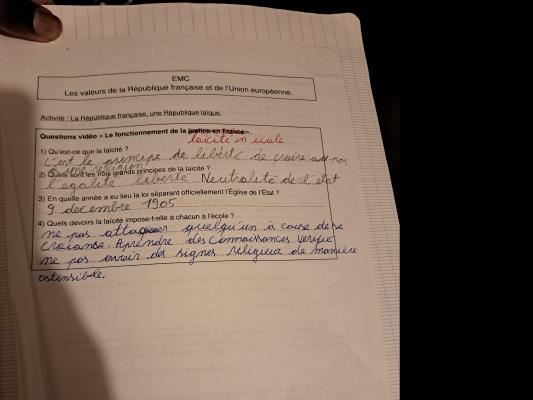 EMC
Les valeurs de la République française et de l'Union européenne.
Activité : La République française, une République laïque.
Questions vidéo « Le fonctionnement de la justice en France».
laïcité en école
1) Qu'est-ce que la laïcité ?
c'est le principe de liberté de croire ou pas
2) Quels sont les trois grands principes de la laïcité ?
l'egalité liberté Neutralité de l'état
3) En quelle année a eu lieu la loi séparant officiellement l'Église de l'État ?
9 decembre 1905
4) Quels devoirs la laïcité impose-t-elle à chacun à l'école ?
ne pas attaquer quelqu'un à cause de sa
croiance. Aprendre des connaissances verifié
ne pas avoir des signes religieux de manière
ostensible.